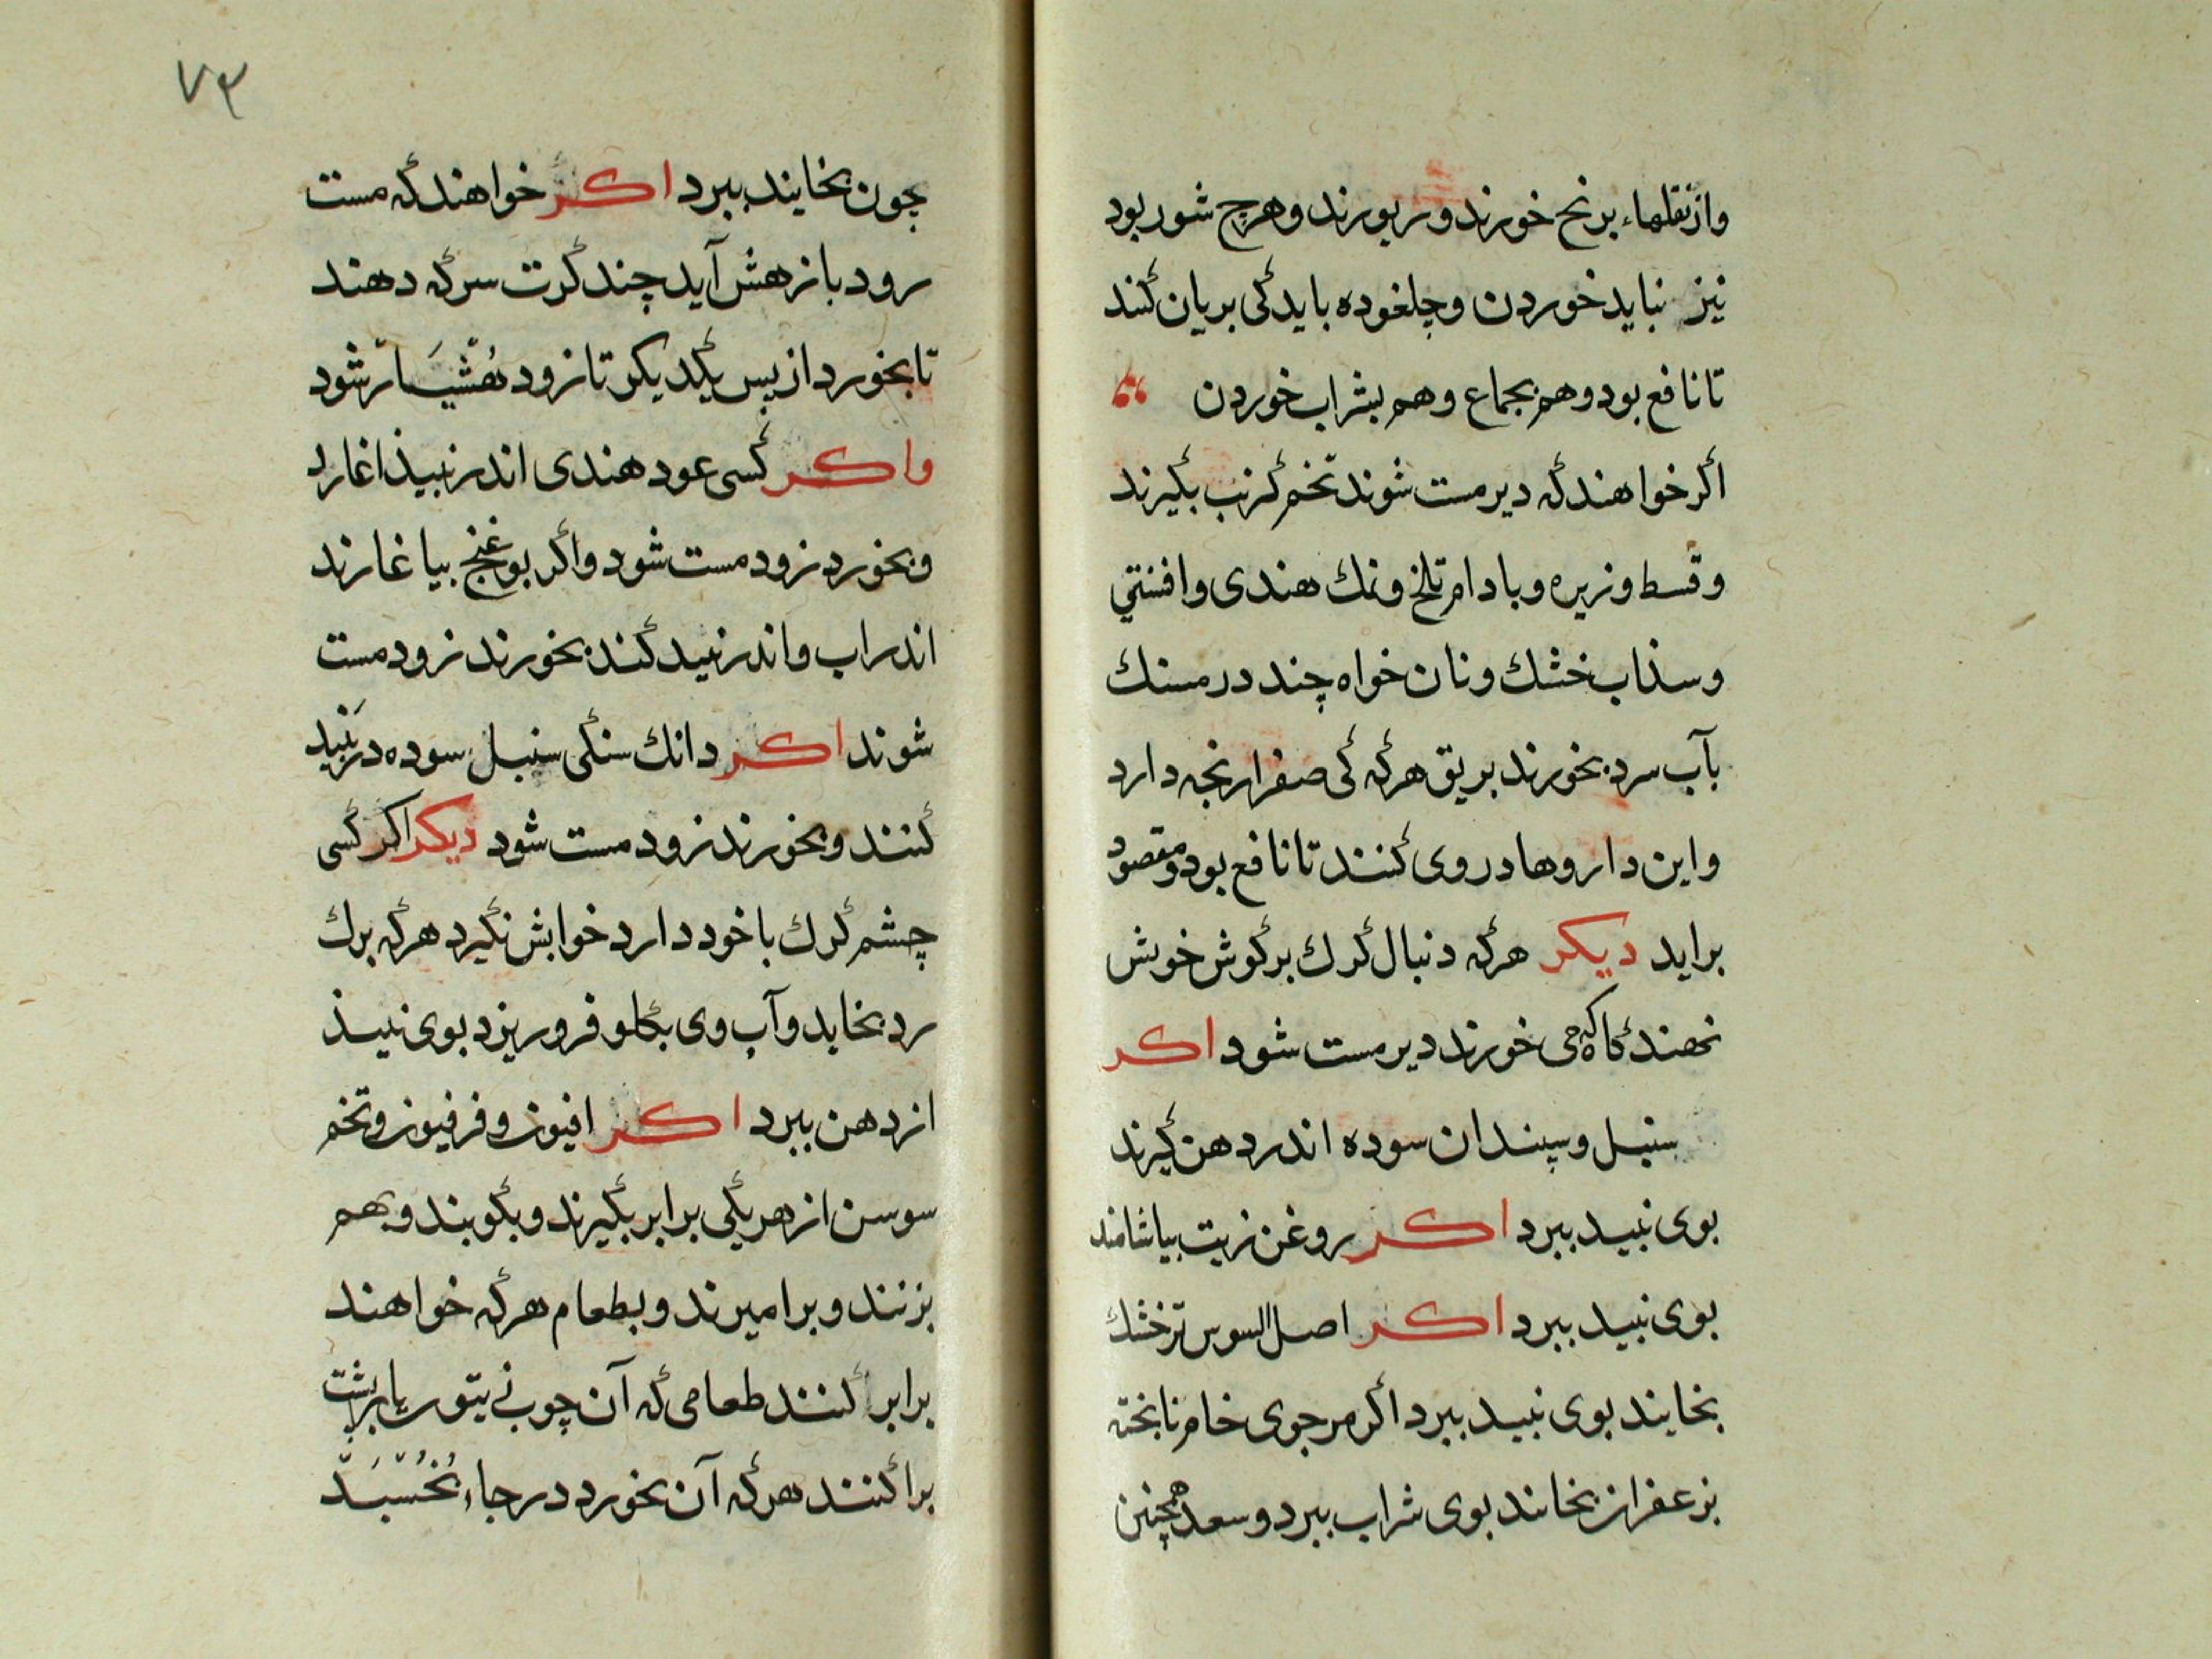 وازنقلهاء برنج خورند وریورند وهرچ شور بود
نیز نباید خوردن وچلغوده باید کی بریان کنند
تا نافع بود وهم بجماع وهم بشراب خوردن
اگر خواهند که دیر مست شوند تخم کرنب بگیرند
وقسط وزیره وبادام تلخ ونمک هندی وافسنتی
وسذاب خشک ونان خواه چند درمسنک
بآب سرد بخورند بریق هرکه کی صفرا رنجه دارد
واین داروها در وی کنند تا نافع بود ومقصود
براید دیکر هرکه دنبال کرک بر کوش خویش
نهند کاه که می خورند دیر مست شود اکر
سنبل وسپندان سوده اندر دهن کیرند
بوی نبید ببرد اکر روغن زیت بیاشامند
بوی نبید ببرد اکر اصل السوس ترخشک
بخایند بوی نبید ببرد اکر مرجوی خام ناپخته
بزعفران بخایند بوی شراب ببرد وسعد همچنین
۷۳
چون بخایند ببرد اکر خواهند که مست
رود باز هش آید چند کرت سرکه دهند
تا بخورد از پس یکدیکر تا زود هُشیَار شود
واکر کسی عود هندی اندر نبیذ اغارد
وبخورد زود مست شود واکر بوغنج بیاغارند
اندراب واندر نبید کند بخورند زود مست
شوند اکر دانک سنکی سنبل سوده در نَبید
کنند وبخورند زود مست شود دیکر اکر کسی
چشم کرک باخود دارد خوابش نکیرد هرکه برک
رد بخاید وآب وی بکلو فرو ریزد بوی نبیذ
از دهن ببرد اکر افیون وفرفیون وتخم
سوسن از هر یکی برابر بگیرند وبکوبند وبهم
بزنند وبرامیرند وبطعام هرکه خواهند
برابر کنند طعامی که آن چوبی یتور یا برشت
برا کنند هرکه آن بخورد در جاء بخُسبَد